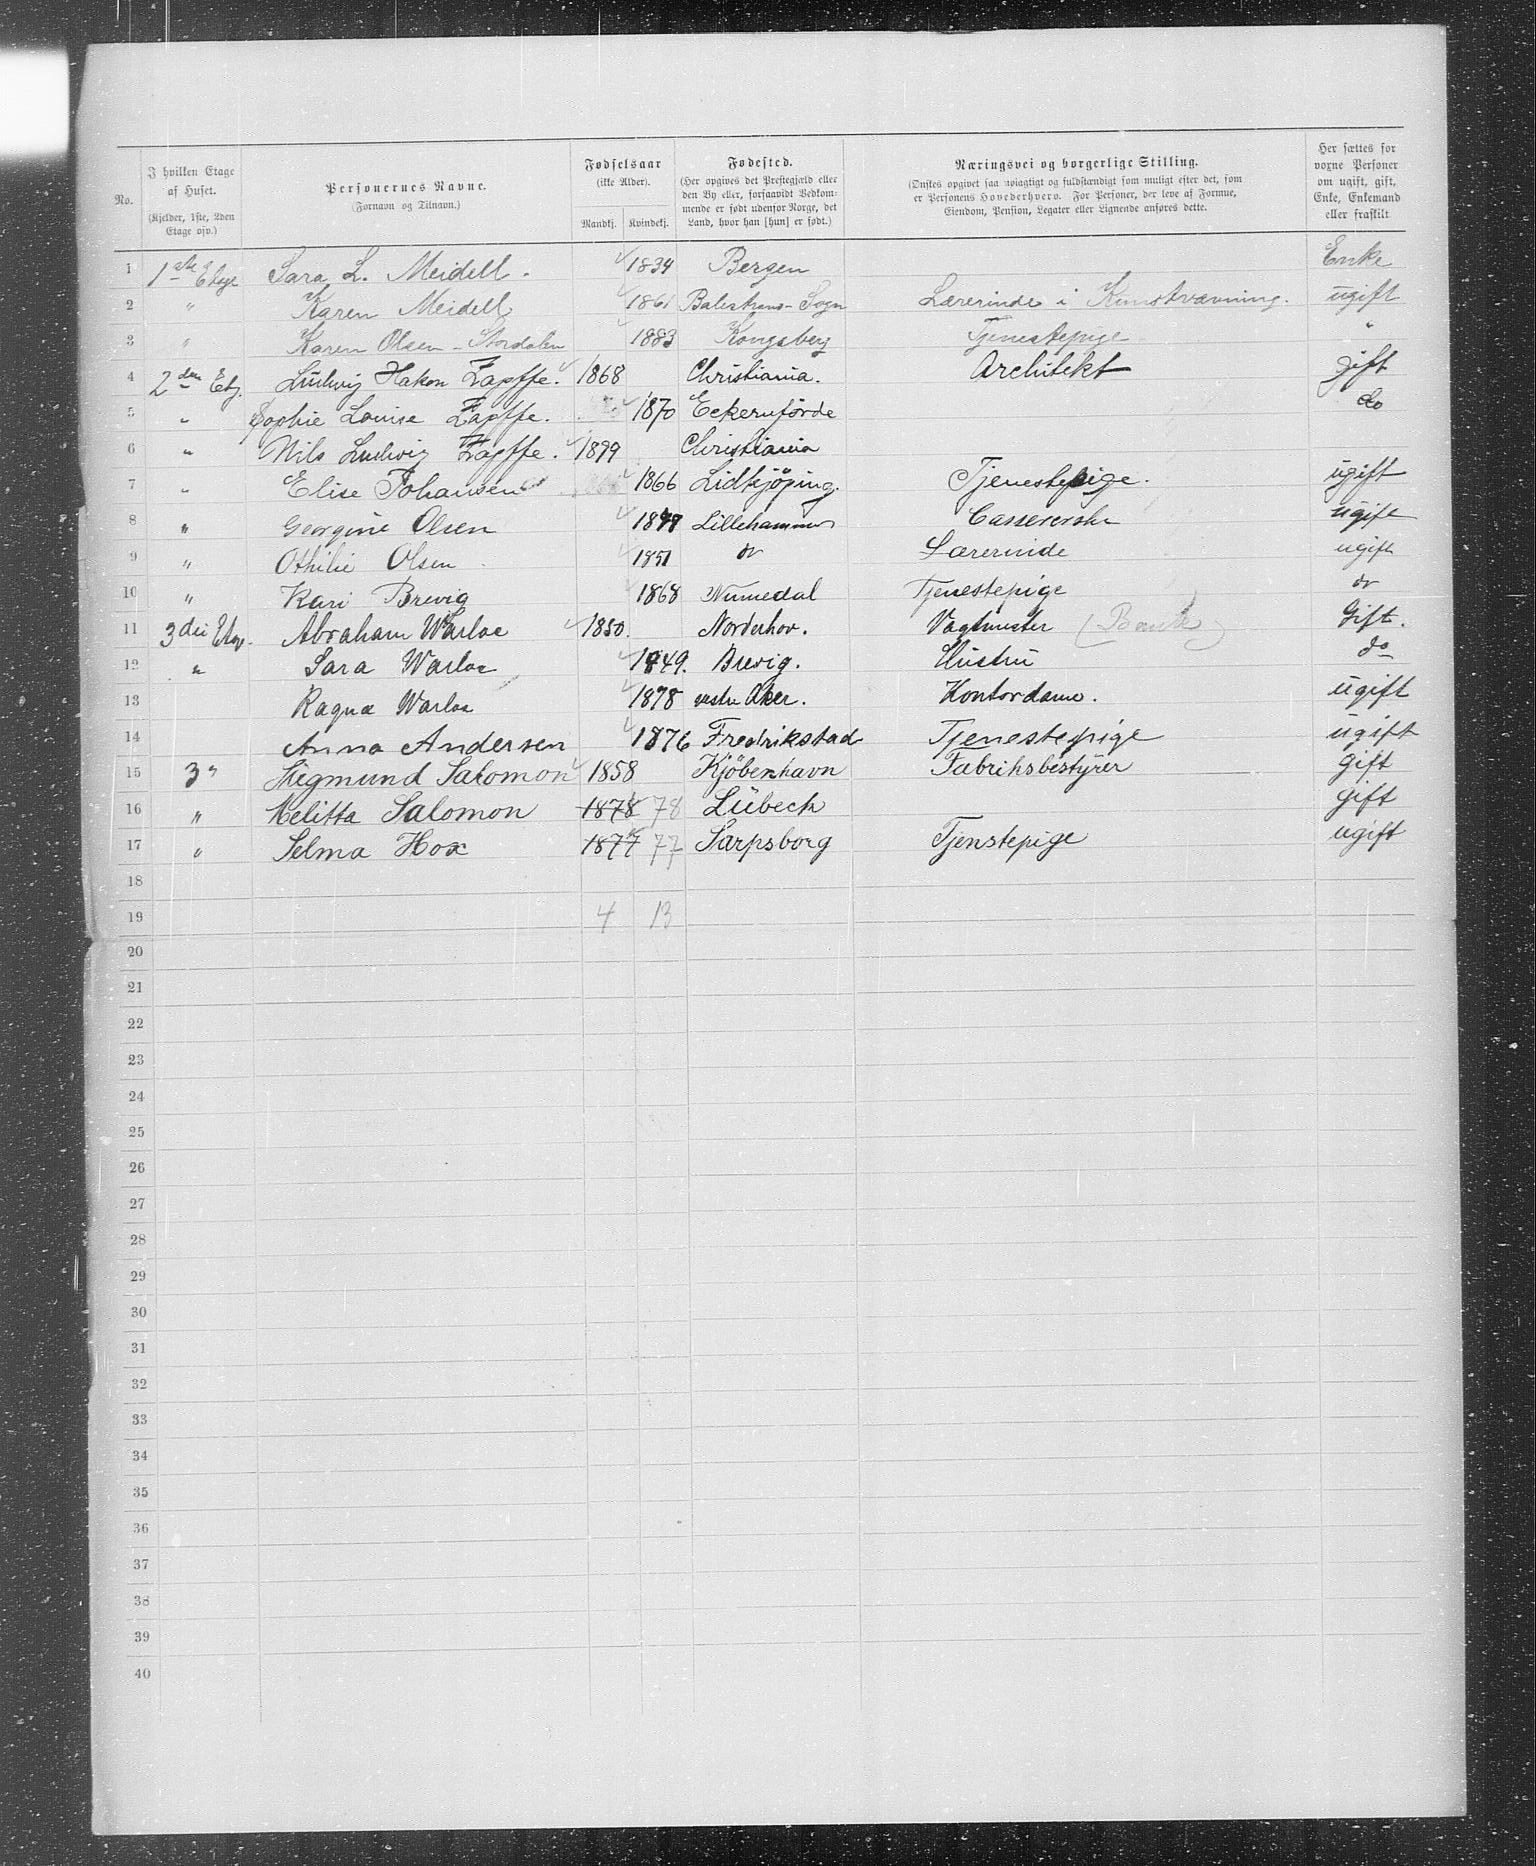 No.
I hvilken Etage af Huset.
(Kjelder, 1ste, 2den Etage osv.)
Personernes Navne.
(Fornavn og Tilnavn.)
Fødselsaar
(ikke Alder).
Mandkj. Kvindekj.
Fødested.
(Her opgives det Prestegjæld eller
den By eller, forsaavidt Vedkom-
mende er født udenfor Norge, det
Land, hvor han [hun] er født.)
Næringsvei og borgerlige Stilling.
(Ønskes opgivet saa nøiagtigt og fuldstændigt som muligt efter det, som
er Personens Hovederhverv. For Personer, der leve af Formue,
Eiendom, Pension, Legater eller Lignende anføres dette.
Her sættes for
voxne Personer
om ugift, gift,
Enke, Enkemand
eller fraskilt
1 1ste Etage Sara L. Meidell. 1834 Bergen Enke
2 " Karen Meidell 1861 Balestrand - Sogn Lærerinde i Kunstvævning. ugift
3 " Karen Olsen - Stordalen 1883 Kongsberg Tjenestepige "
4 2den Etg. Ludvig Hakon Zapffe. 1868 Christiania. Architekt gift
5 " Sophie Louise Zapffe. 1870 Eckernförde do
6 " Nils Ludvig Zapffe. 1899 Christiania
7 " Elise Johansen 1866 Lidkjöping. Tjenestepige. ugift
8 " Georgine Olsen Lillehammer Cassererske ugift
9 " Othilie Olsen 1851 do Lærerinde ugift
10 " Kari Brevig 1868 Numedal Tjenestepige do
11 3die Etag. Abraham Warloe 1850. Norderhov. Vagtmester (Bank) Gift.
12 " Sara Warloe 1849. Brevig. Hustru do
13 Ragna Warloe 1878 vestre Aker. Kontordame. ugift
14 Anna Andersen 1876 Fredrikstad Tjenestepige ugift
15 3 " Siegmund Salomon 1858 Kjöbenhavn Fabriksbestyrer gift
16 " Melitta Salomon 1878 78 Lübeck gift
17 " Selma Hox 1877 77 Sarpsborg Tjenstepige ugift
18
19 4 13
20
21
22
23
24
25
26
27
28
29
30
31
32
33
34
35
36
37
38
39
40